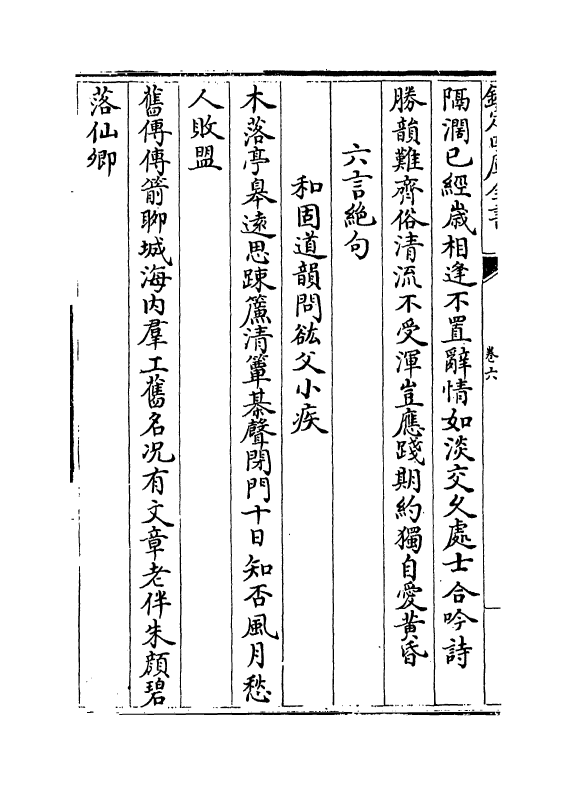 欽定四庫全書
卷六
隔濶已經歳相逢不置辭情如淡交久處士合吟詩
勝韻難齊俗清流不受渾豈應踐期約獨自愛黄昏
六言絶句
和固道韻問紘父小疾
木落亭臯逺思踈簾清簟棊聲閉門十日知否風月愁
人敗盟
舊傳傳箭聊城海内羣工舊名况有文章老伴朱顔碧
落仙卿